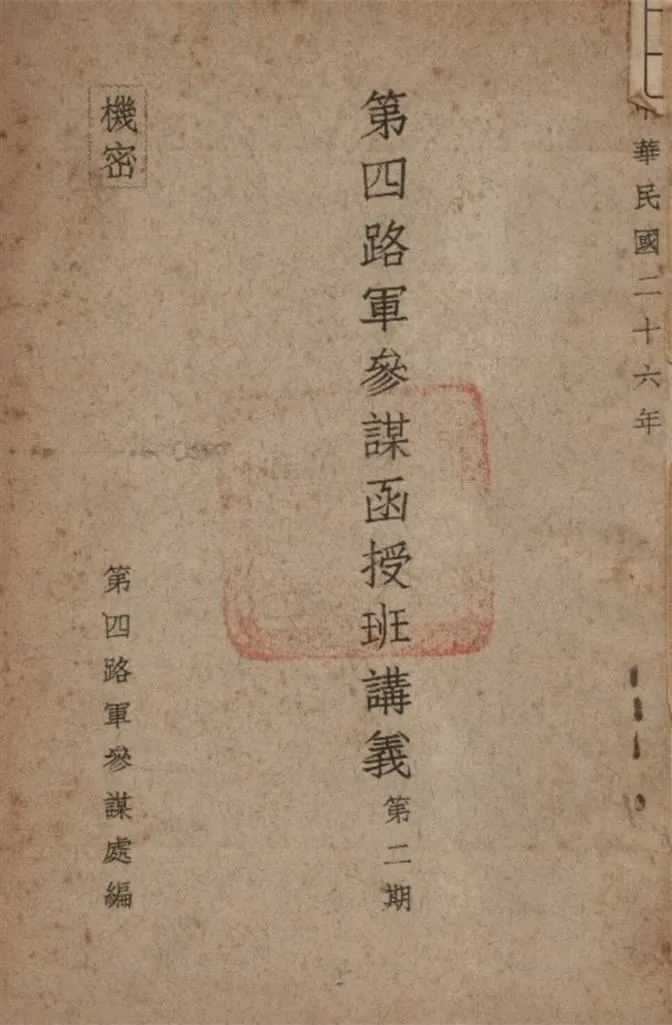 中華民國二十六年
第四路軍參謀函授班講義 第二期
機密
第四路軍參謀處編